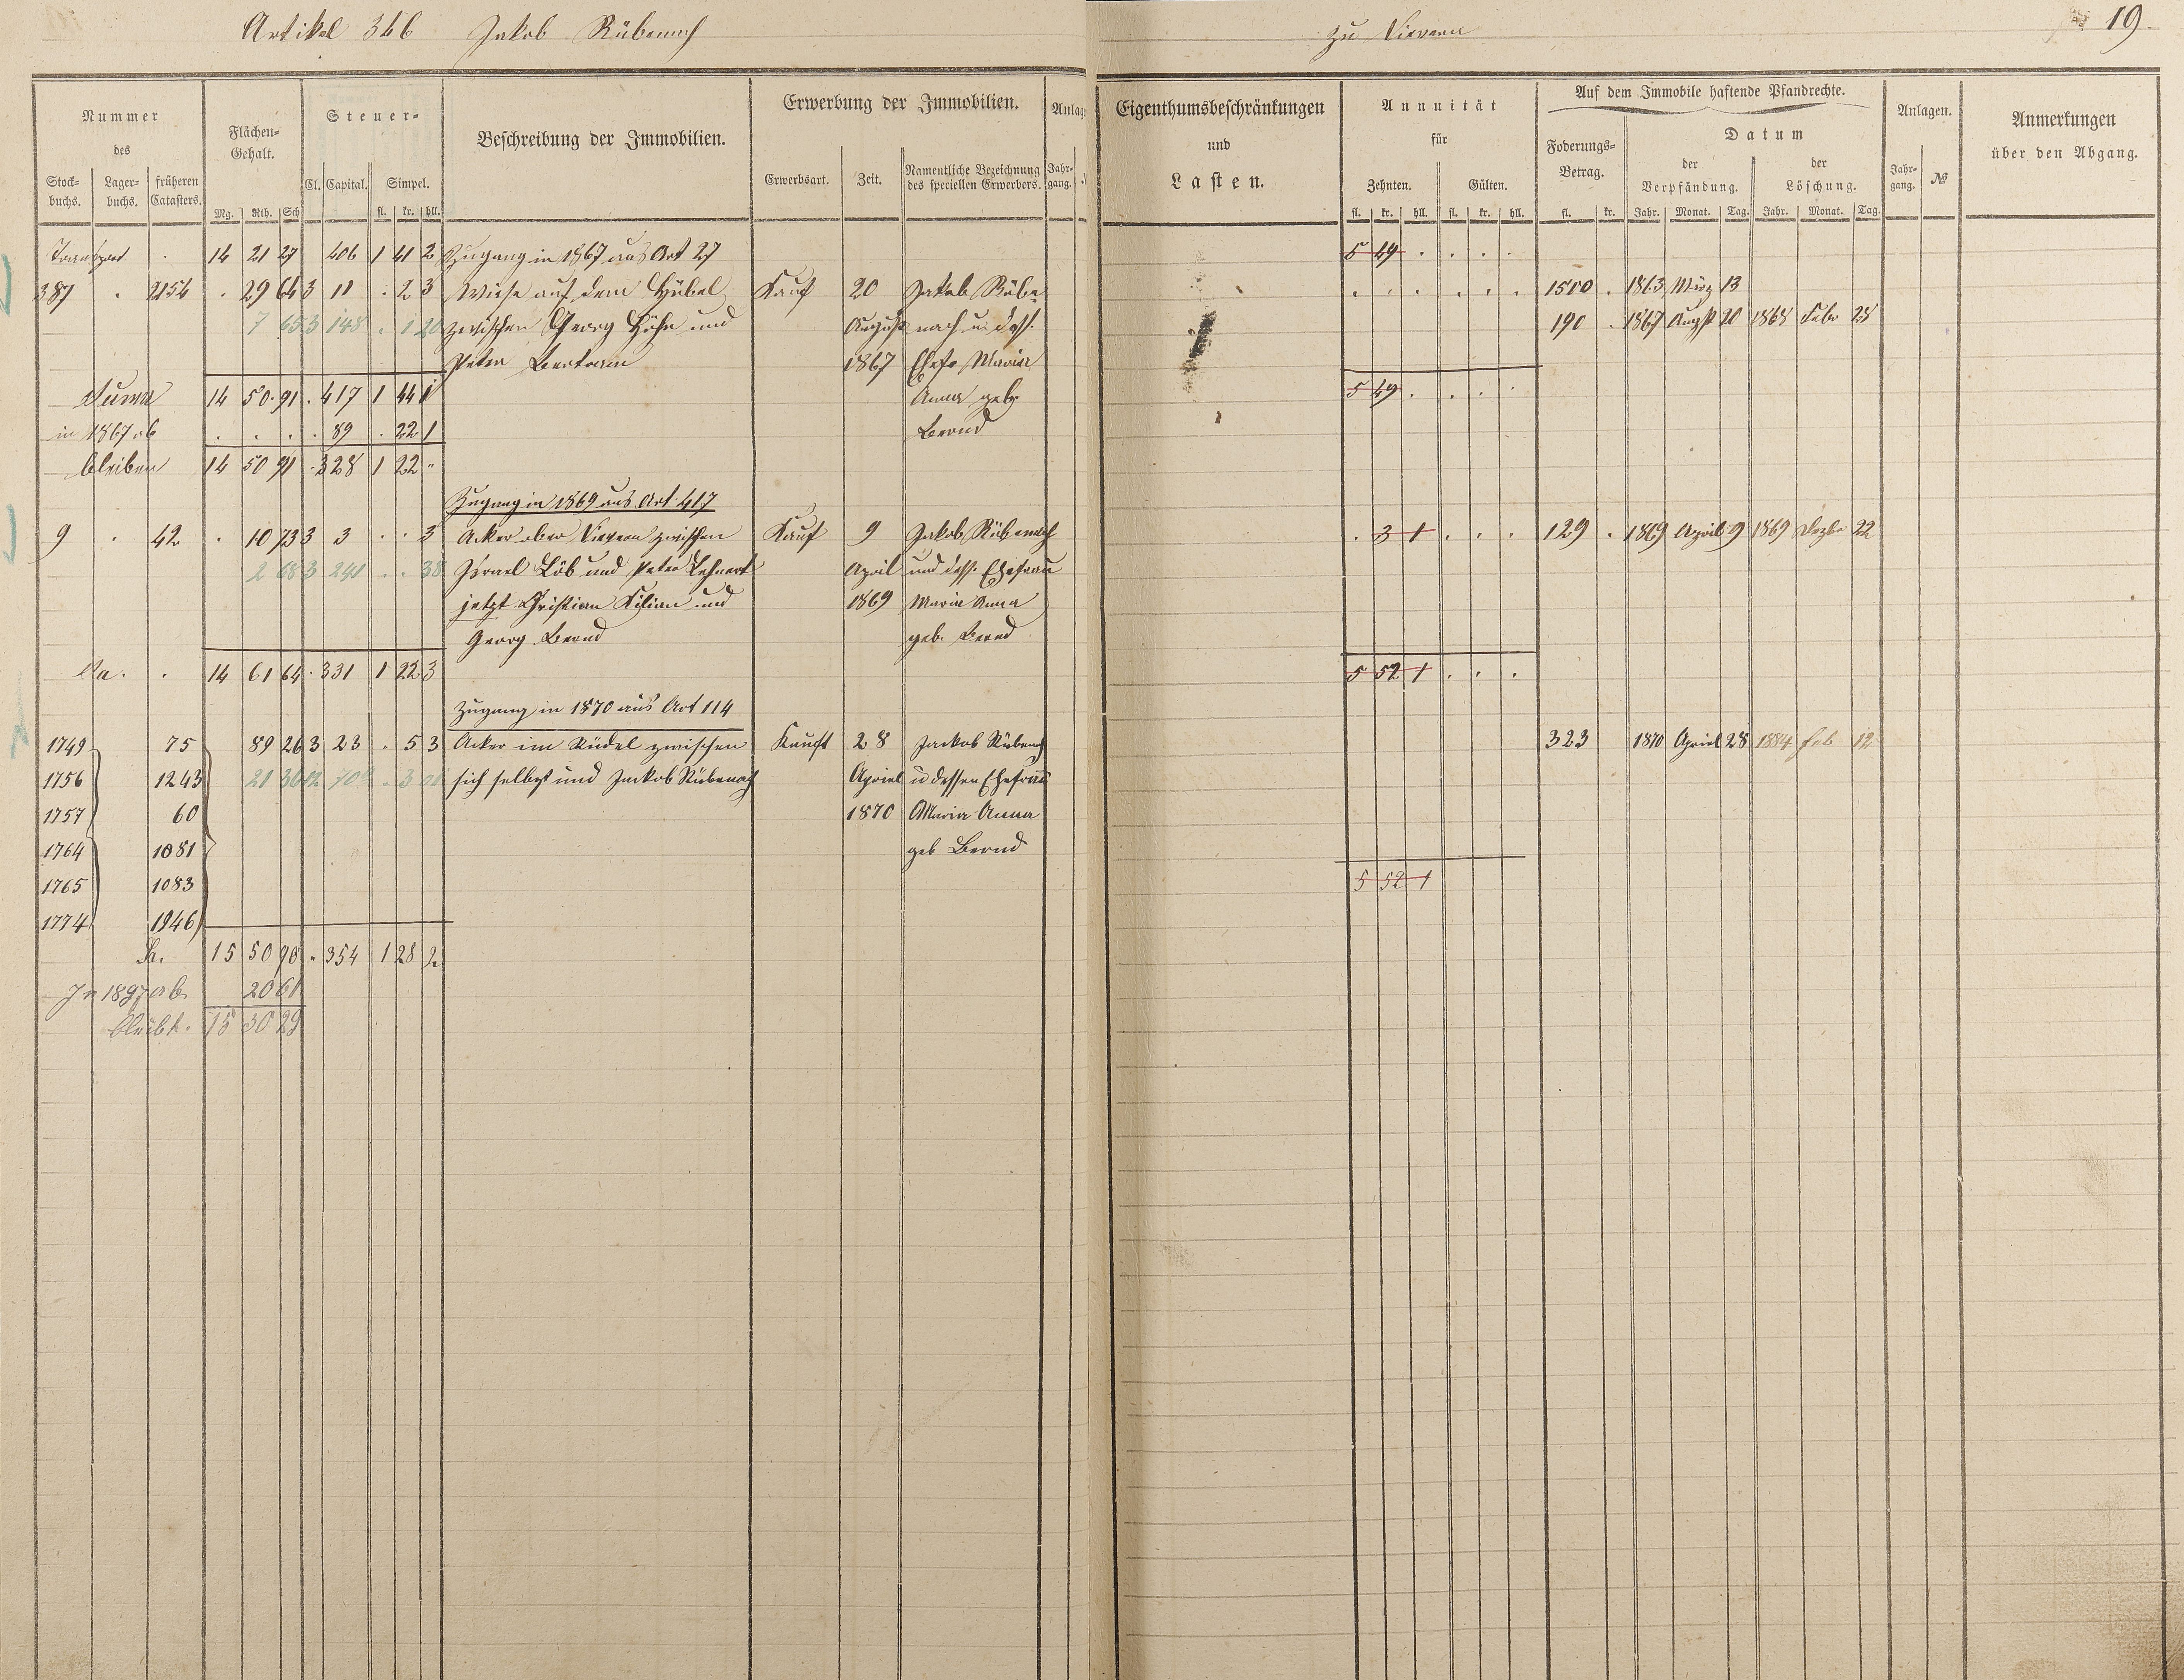 Artikel 346 Jakob Rübenach
zu Viernau 19.
Nummer des
Stockbuchs. Lagerbuchs. früheren Catasters.
Flächen-Gehalt.
Mg. Rth. Sch
Steuer-
Cl. Capital. Simpel.
fl. kr. hll.
Beschreibung der Immobilien.
Erwerbung der Immobilien.
Erwerbsart. Zeit. Namentliche Bezeichnung des speciellen Erwerbers.
Anlage
Jahrgang.
Eigenthumsbeschränkungen
und
Lasten.
Annuität
für
Zehnten. Gülten.
fl. kr. hll. fl. kr. hll.
Auf dem Immobile haftende Pfandrechte.
Foderungs-Betrag.
fl. kr.
Datum
der Verpfändung. der Löschung.
Jahr. Monat. Tag. Jahr. Monat. Tag.
Anlagen.
Jahrgang. №
Anmerkungen
über den Abgang.
Transport . 14 21 27 406 1 41 2 Zugang in 1867 aus Art 27 5 49 . . . .
387 . 2154 . 29 64 3 11 . 2 3 Wiese auf dem Hübel Kauf 20 Jakob Rübe- . . . . . . 1500 . 1863 März 13
7 65 3 148 . 1 20 zwischen Georg Höhn und August nach u. dess. 190 . 1867 Augst 20 1868 Febr 28
Peter Bertram 1867 Ehefr Maria
Summa 14 50 91 . 417 1 44 1 Anna geb. 5 49 . . . .
in 1867 ab . . . . 89 . 22 1 Bernd
bleiben 14 50 91 . 328 1 22 "
Zugang in 1869 aus Art. 417
9 . 42 . 10 73 3 3 . . 3 Acker ober zwischen Kauf 9 Jakob Rübenach . 3 1 . . . 129 . 1869 April 9 1869 Dezbr 22
2 68 3 241 . . 38 Israel Löb und Peter Lehnert April und dess. Ehefrau
jetzt Christian Kilian und 1869 Maria Anna
Georg Bernd geb. Bernd
Sa. . 14 61 64 . 331 1 22 3 5 52 1 . . .
Zugang in 1870 aus Art 114
1749 75 89 26 3 23 . 5 3 Acker im Rüdel zwischen Kauft 28 Jackob Rübenach 323 1870 Apriel 28 1884 Feb 12
1756 1243 21 36 sich selbst und Jackob Rübenach Apriel u dessen Ehefrau
1757 60 1870 Maria Anna
1764 1081 geb Bernd
1765 1083 5 52 1
1774 1946
Sa. 15 50 90 " 354 1 28 2
In 1897 ab. 20 61
bleibt. 15 30 29